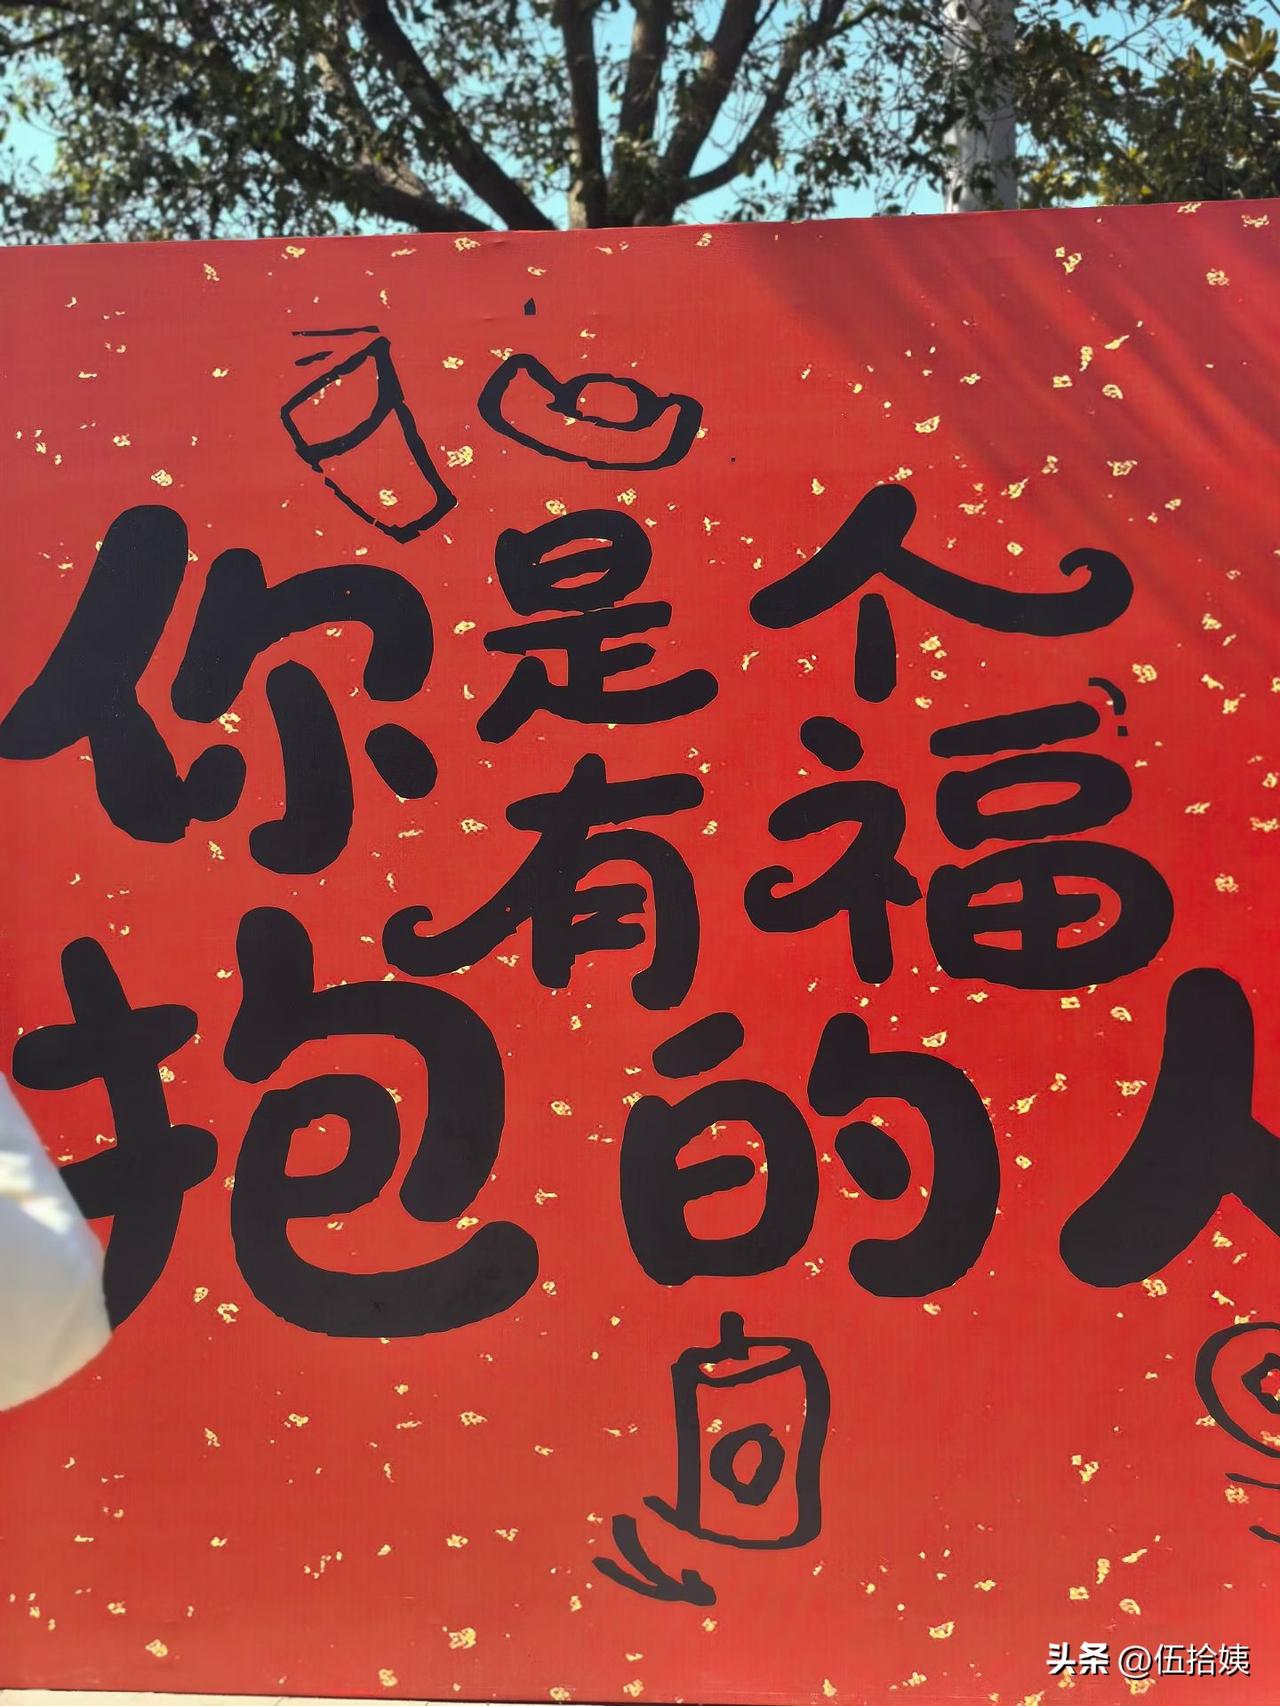 你是个
有福
抱的人
头条 @伍拾姨